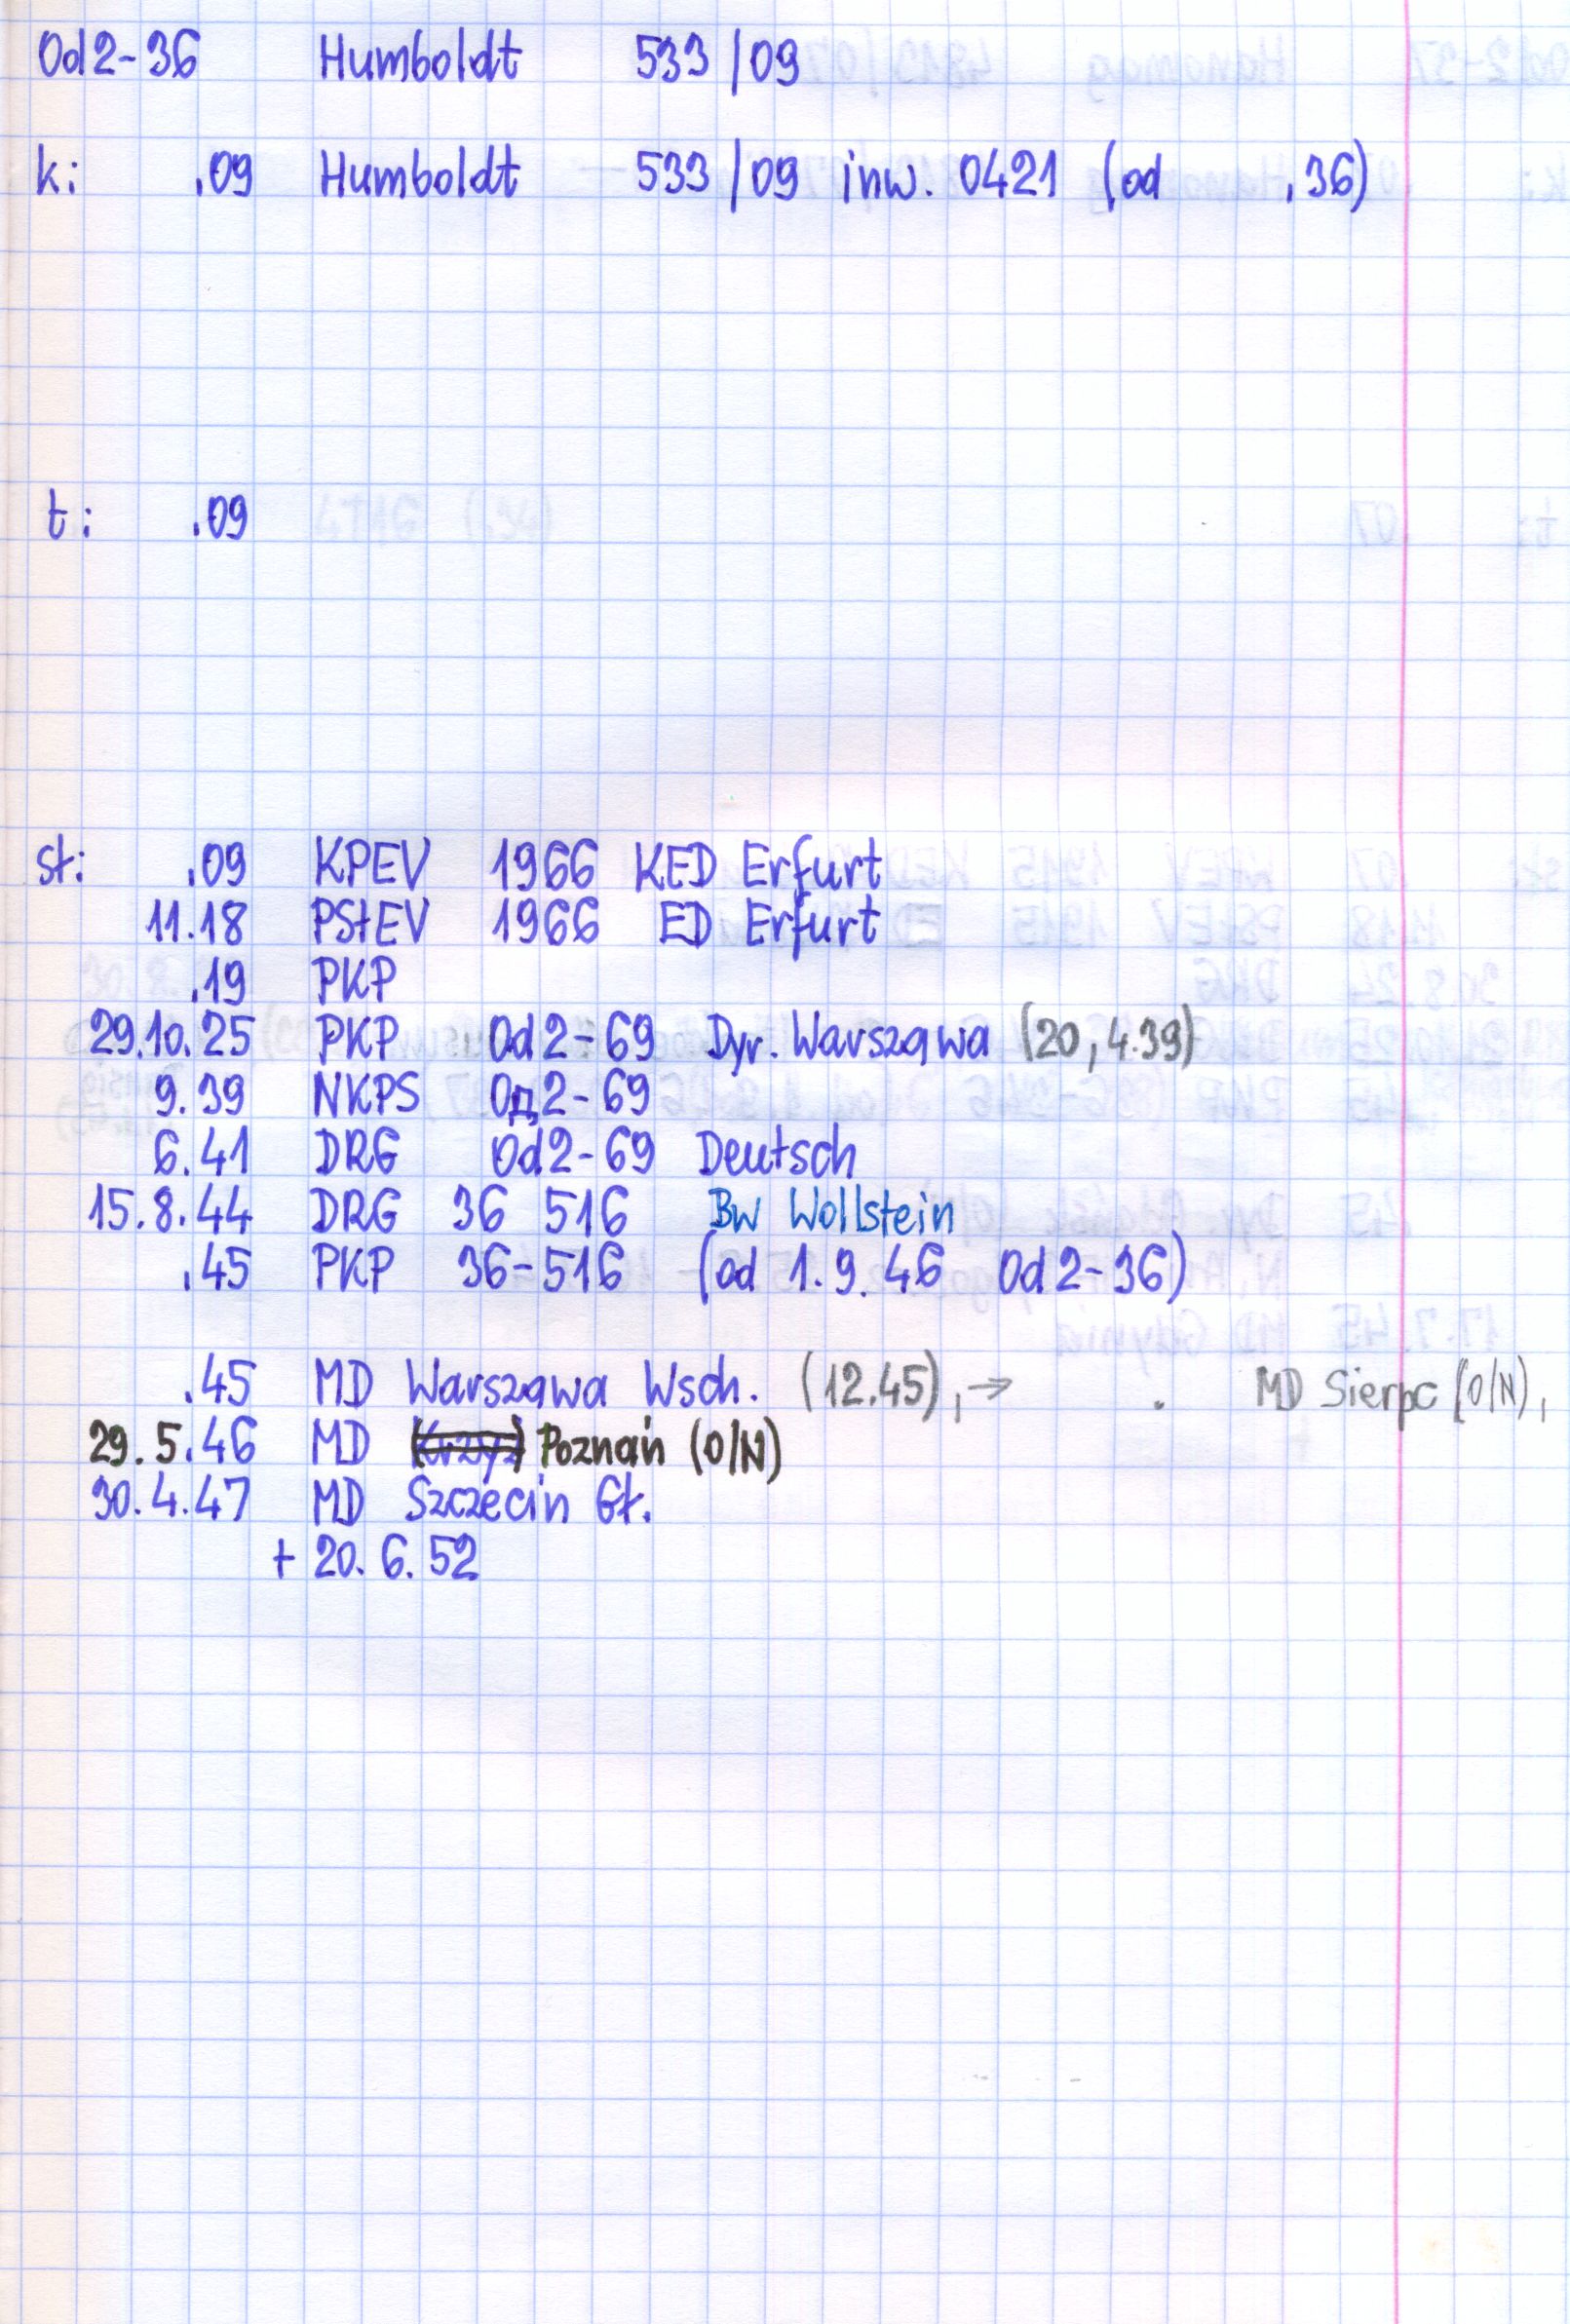 Od2-36 Humboldt 533/09
k: .09 Humboldt 533/09 inw. 0421 (od .36)
t: .09
st: .09 KPEV 1966 KED Erfurt
11.18 PStEV 1966 ED Erfurt
.19 PKP
29.10.25 PKP Od2-69 Dyr. Warszawa (20, 4.39)
9.39 NKPS Од2-69
6.41 DRG Od2-69 Deutsch
15.8.44 DRG 36 516 Bw Wollstein
.45 PKP 36-516 (od 1.9.46 Od2-36)
.45 MD Warszawa Wsch. (12.45), → . MD Sierpc (O/N),
29.5.46 MD Poznań (O/N)
30.4.47 MD Szczecin Gł.
+ 20.6.52